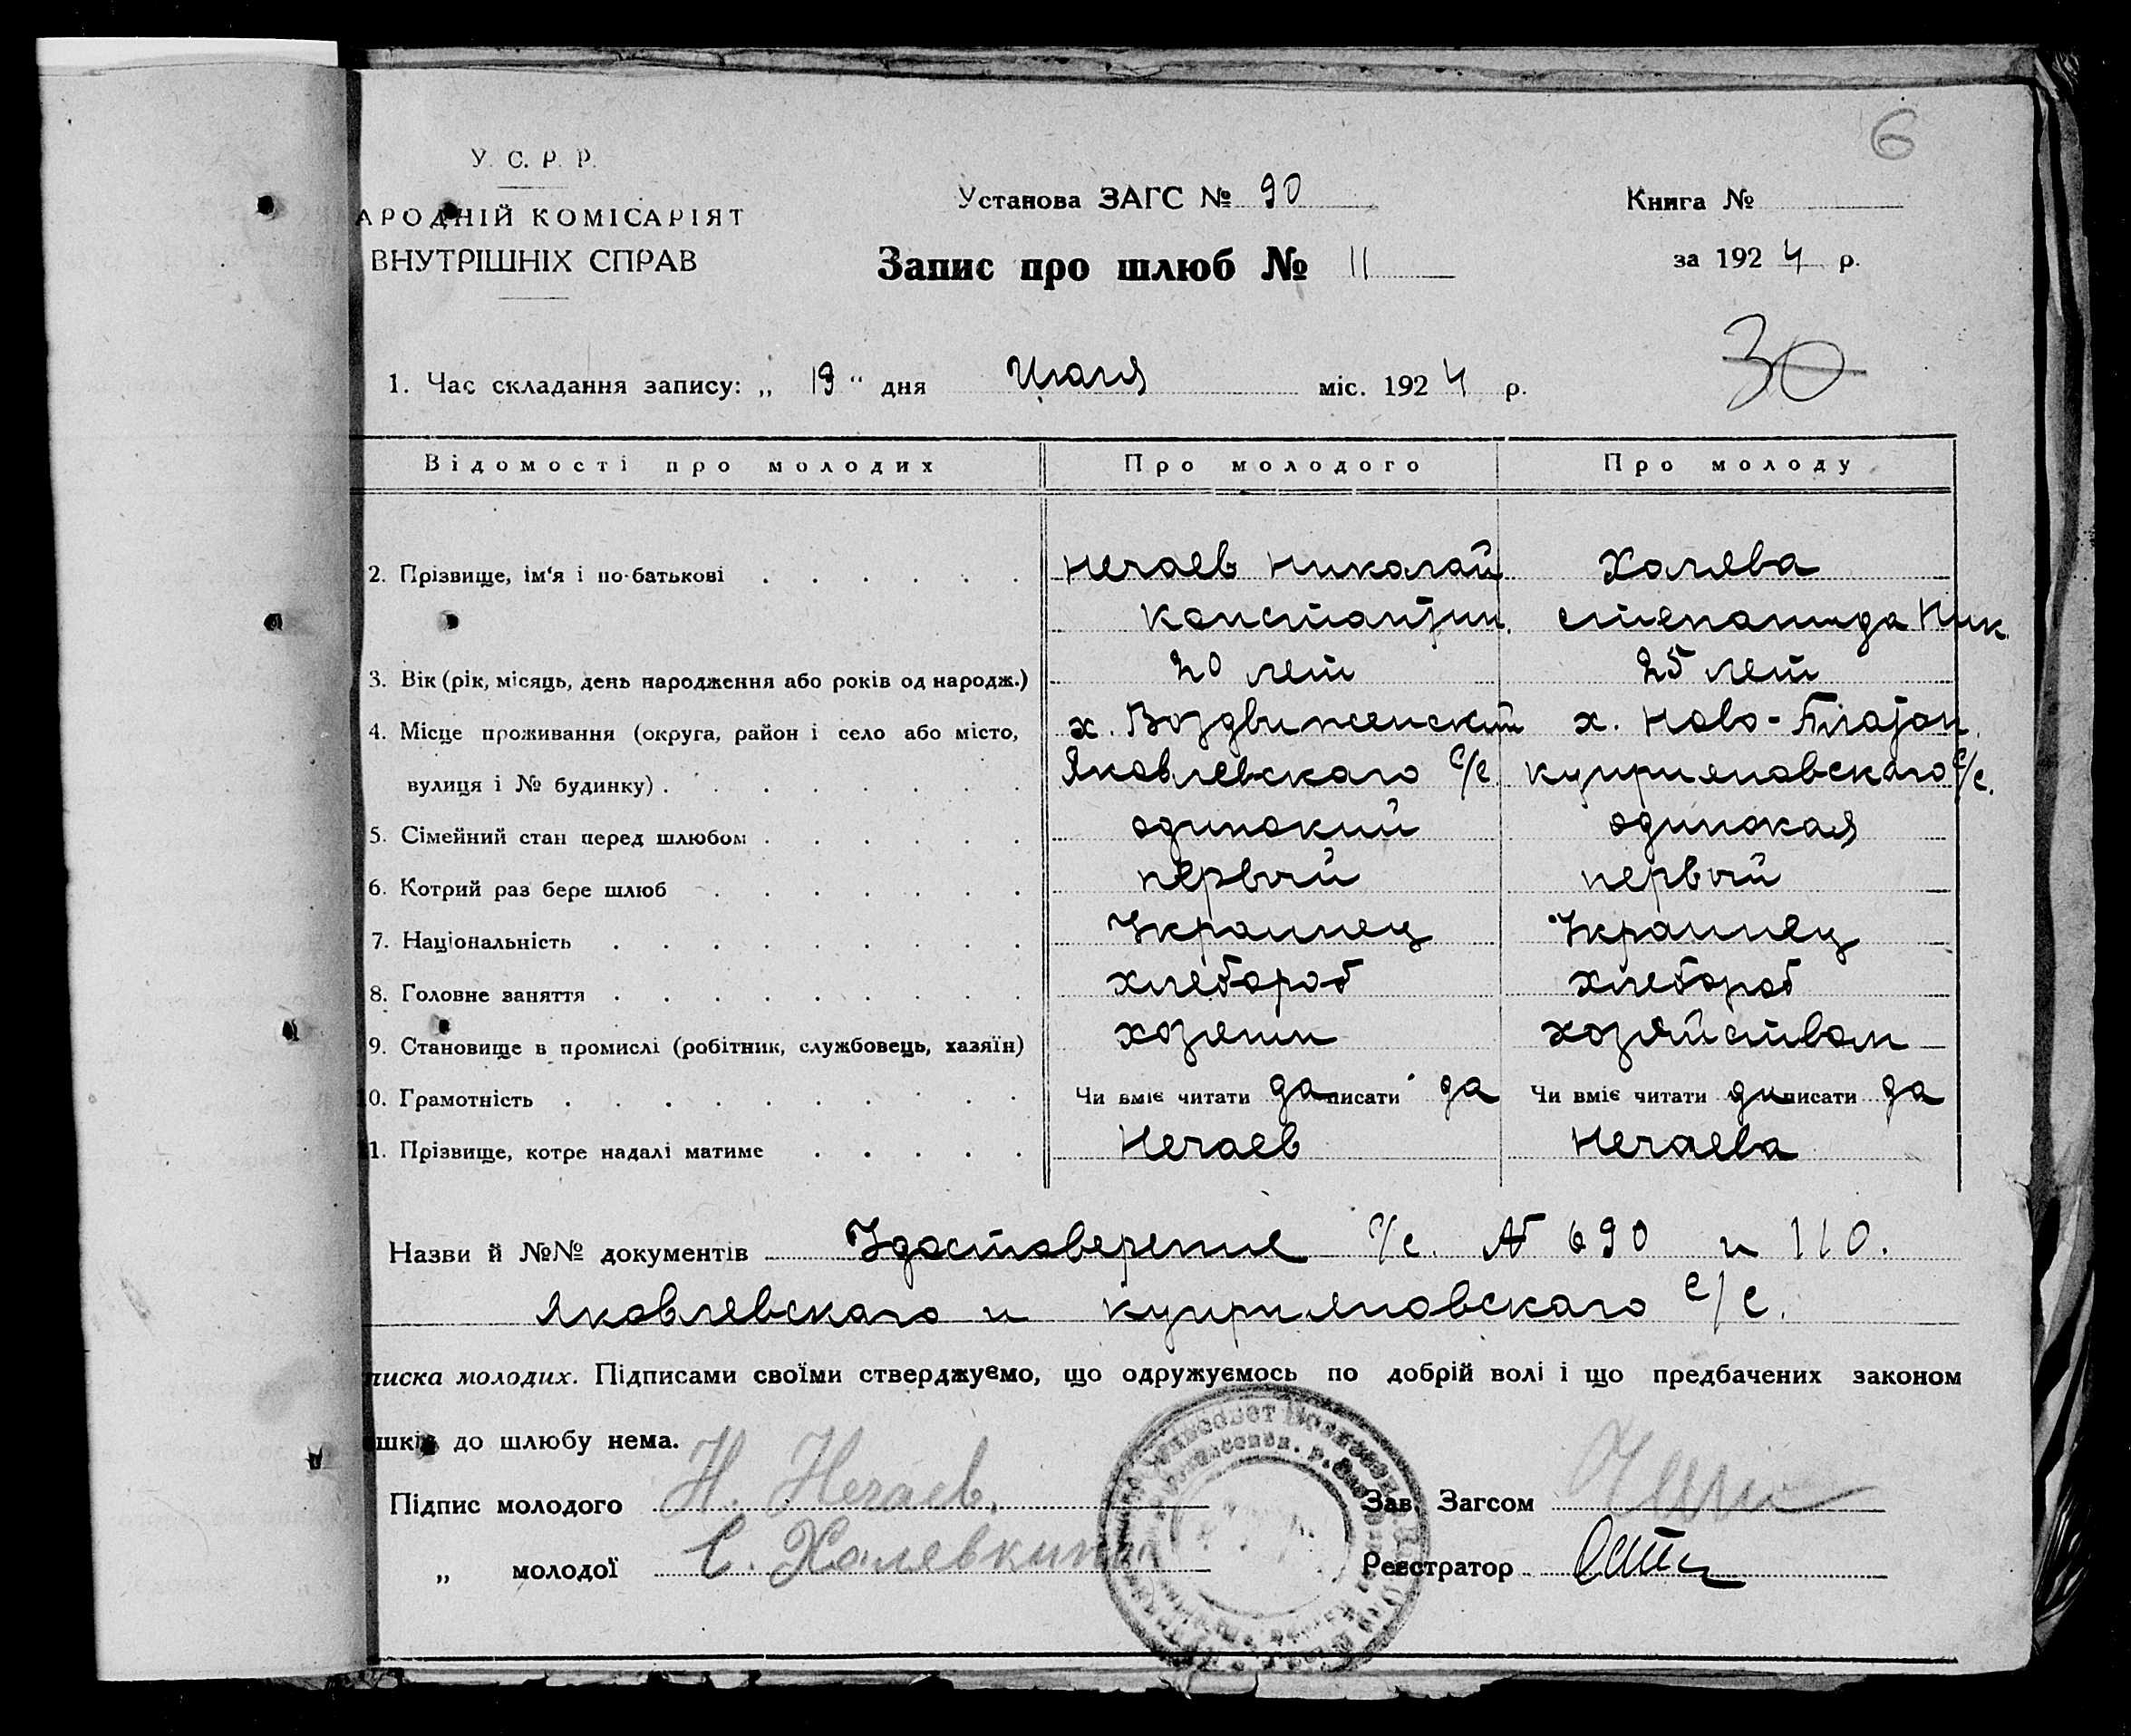 6
У. С. Р. Р.
АРОДНІЙ КОМІСАРІЯТ
ВНУТРІШНІХ СПРАВ
Установа ЗАГС № 90
Запис про шлюб № 11
Книга №
за 1924 р.
30
1. Час складання запису: „ 19 “ дня Июля міс. 1924 р.
Відомості про молодих Про молодого Про молоду
2. Прізвище, ім‘я і по-батькові Нечаев Николай Халева
Константин. Степанида Ник.
3. Вік (рік, місяць, день народження або років од народж.) 20 лет 25 лет
4. Місце проживання (округа, район і село або місто, х. Воздвиженский х. Ново-Благодат.
вулиця і № будинку) Яковлевскаго с/с. Куприяновскаго с/с.
5. Сімейний стан перед шлюбом одинокий одинокая
6. Котрий раз бере шлюб первый первый
7. Національність Украинец Украинец
8. Головне заняття хлебороб хлебороб
9. Становище в промислі (робітник, службовець, хазяїн) хозяин хозяйством
0. Грамотність Чи вміє читати да писати да Чи вміє читати да писати да
1. Прізвище, котре надалі матиме Нечаев Нечаева
Назви й №№ документів Удостоверение с/с. № 690 и 110.
Яковлевскаго и Куприяновскаго с/с.
писка молодих. Підписами своїми стверджуємо, що одружуємось по добрій волі і що предбачених законом
шкід до шлюбу нема.
Підпис молодого Н. Нечаев. Зав. Загсом
„ молодої С. Халевкина Реєстратор